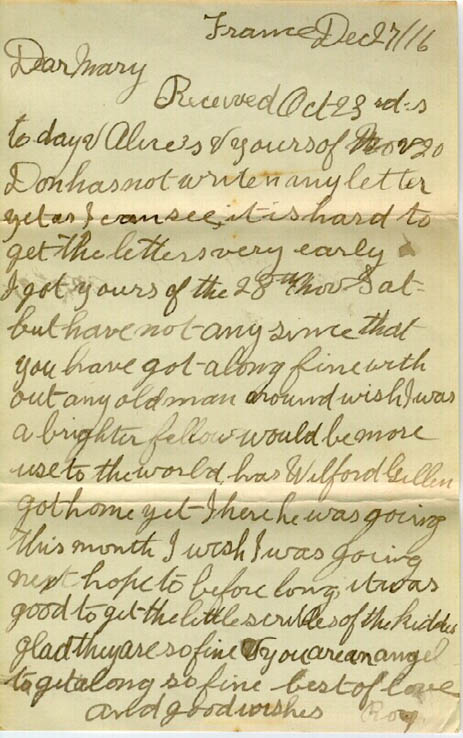 France Dec 27/16
Dear Mary
Received Oct 23rd-s
to day & Alice's & yours of Nov 20
Don has not writen my letter
yet as I can see, it is hard to
get the letters very early
I got yours of the 28th Nov Sat-
but have not any since that
you have got along fine with
out any old man around wish I was
a brighter fellow would be more
use to the world, has Wilford Gillen
got home yet I here he was going
this month I wish I was going
next hope to before long, it was
good to get the little scribles of the kiddies
glad they are so fine & you are an angel
to get along so fine best of love
and good wishes Roy